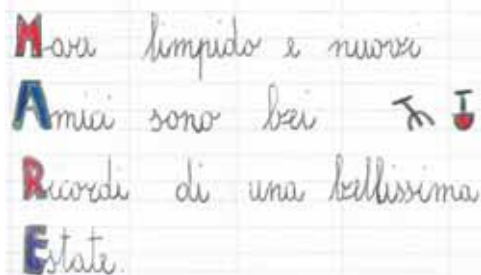 Mare limpido e nuovi
Amici sono bei
Ricordi di una bellissima
Estate.